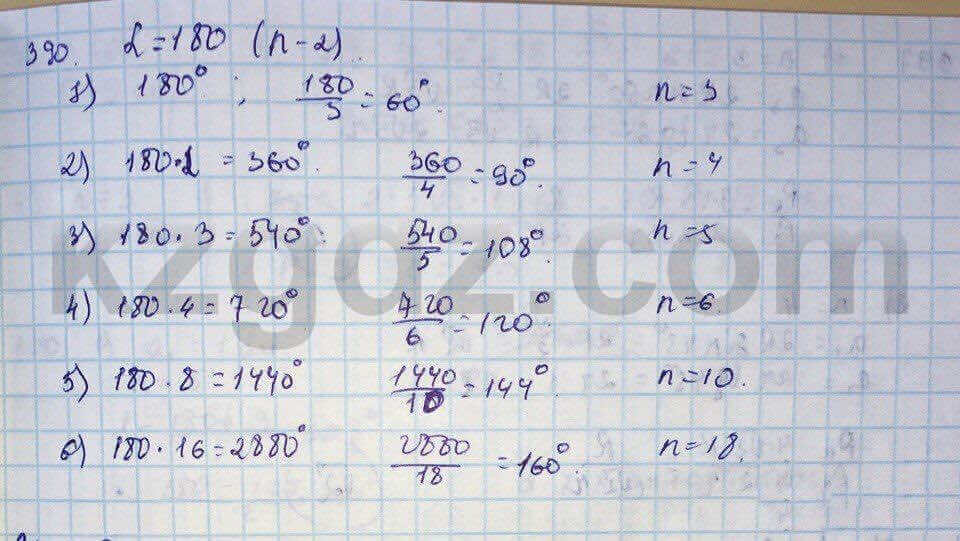 390. L = 180 (n - 2)
1) 180° ; 180/3 = 60°. n = 3
2) 180 · 2 = 360°. 360/4 = 90°. n = 4
3) 180 · 3 = 540° 540/5 = 108°. n = 5
4) 180 · 4 = 720° 720/6 = 120°. n = 6.
5) 180 · 8 = 1440° 1440/10 = 144°. n = 10.
6) 180 · 16 = 2880° 2880/18 = 160°. n = 18.
kzgoz.com